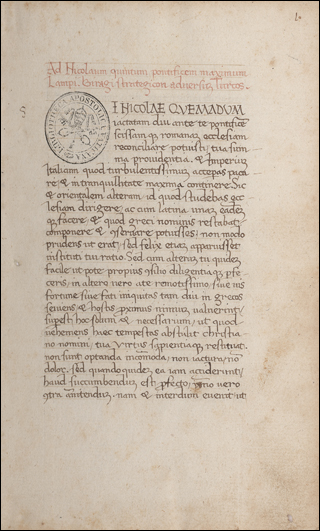 Ad Nicolaum quintum pontificem maximum
Lampi. Biragi strategicon adversus Turcos.
BIBLIOTHECA APOSTOLICA VATICANA
I. NICOLAE QVEMADVM
iactatam diu ante te pontifice
scissamq; romanam ecclesiam
reconciliare potuisti, tua sum
ma providentia. & Imperiũ
Italium quod turbulentissimũ, accepas paca
re, & in tranquillitate maxima continere. Sic
& orientalem alteram. id quod studebas, ęc
clesiam dirigere, ac cum latina unaz eadẽq
q; facere, & quod greci nominis restabat
componere & potuisses. non modo
prudens ut erat, sed felix etiaz apparuisset
instituti tui ratio. Sed cum alterũ tu quidez
facile ut pote propius diligentiaq; pfe
ceris, in altero vero a te remotissimo, sive nis
fortune sive fati iniquitas tam diu in grecos
seviens, & hostis pximus nimiuz valuerint.
supest hoc solum & necessarium, ut quod
vehemens haec tempestas abstulit christia
no nomini, tua virtus sapientiaq; restituat.
non sunt optanda incomoda. non iactura, nõ
dolor. sed quando quidez ea iam acciderunt,
haud succumbenduz est pfecto, vero
annitenduz. nam & interdum evenit ut